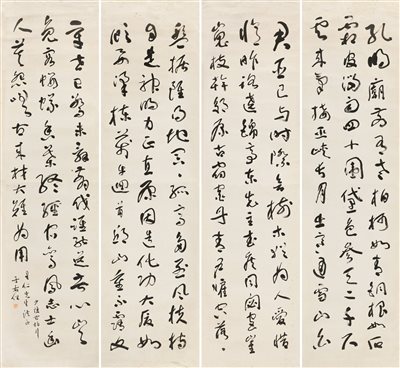 孔明廟前有老柏柯如青銅根如石
霜皮溜雨四十圍黛色參天二千尺
雲來氣接巫峽長月出寒通雪山白
君臣已與時際會樹木猶為人愛惜
憶昨路繞錦亭東先主武侯同閟宮崔
嵬枝幹郊原古窈窕丹青戶牖空落落
盤據雖得地冥冥孤高多烈風扶持
自是神明力正直原因造化功大廈如
傾要梁棟萬牛迴首邱山重不露文
章世已驚未辭翦伐誰能送苦心豈
免容螻蟻香葉終經宿鸞鳳志士幽
人莫怨嗟古來材大難為用
少陵古柏行
于右任